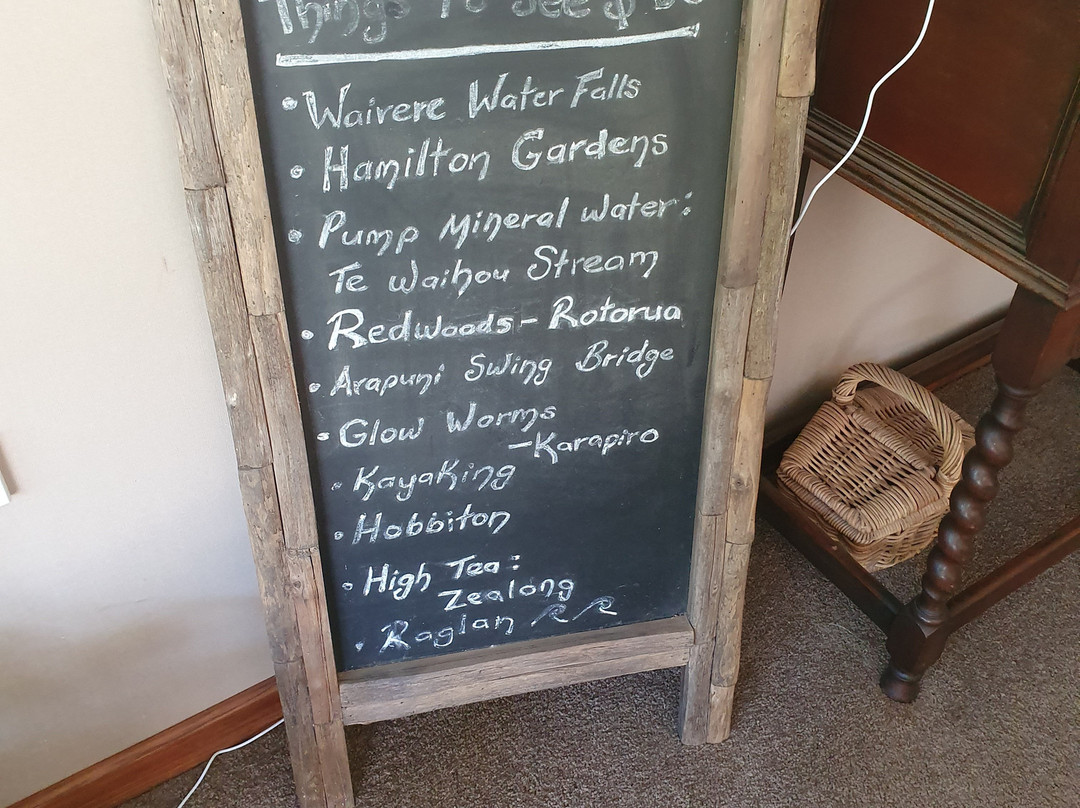 Things To See & Do
• Wairere Water Falls
• Hamilton Gardens
• Pump Mineral Water:
Te Waihou Stream
• Redwoods - Rotorua
• Arapuni Swing Bridge
• Glow Worms
- Karapiro
• Kayaking
• Hobbiton
• High Tea:
Zealong
• Raglan